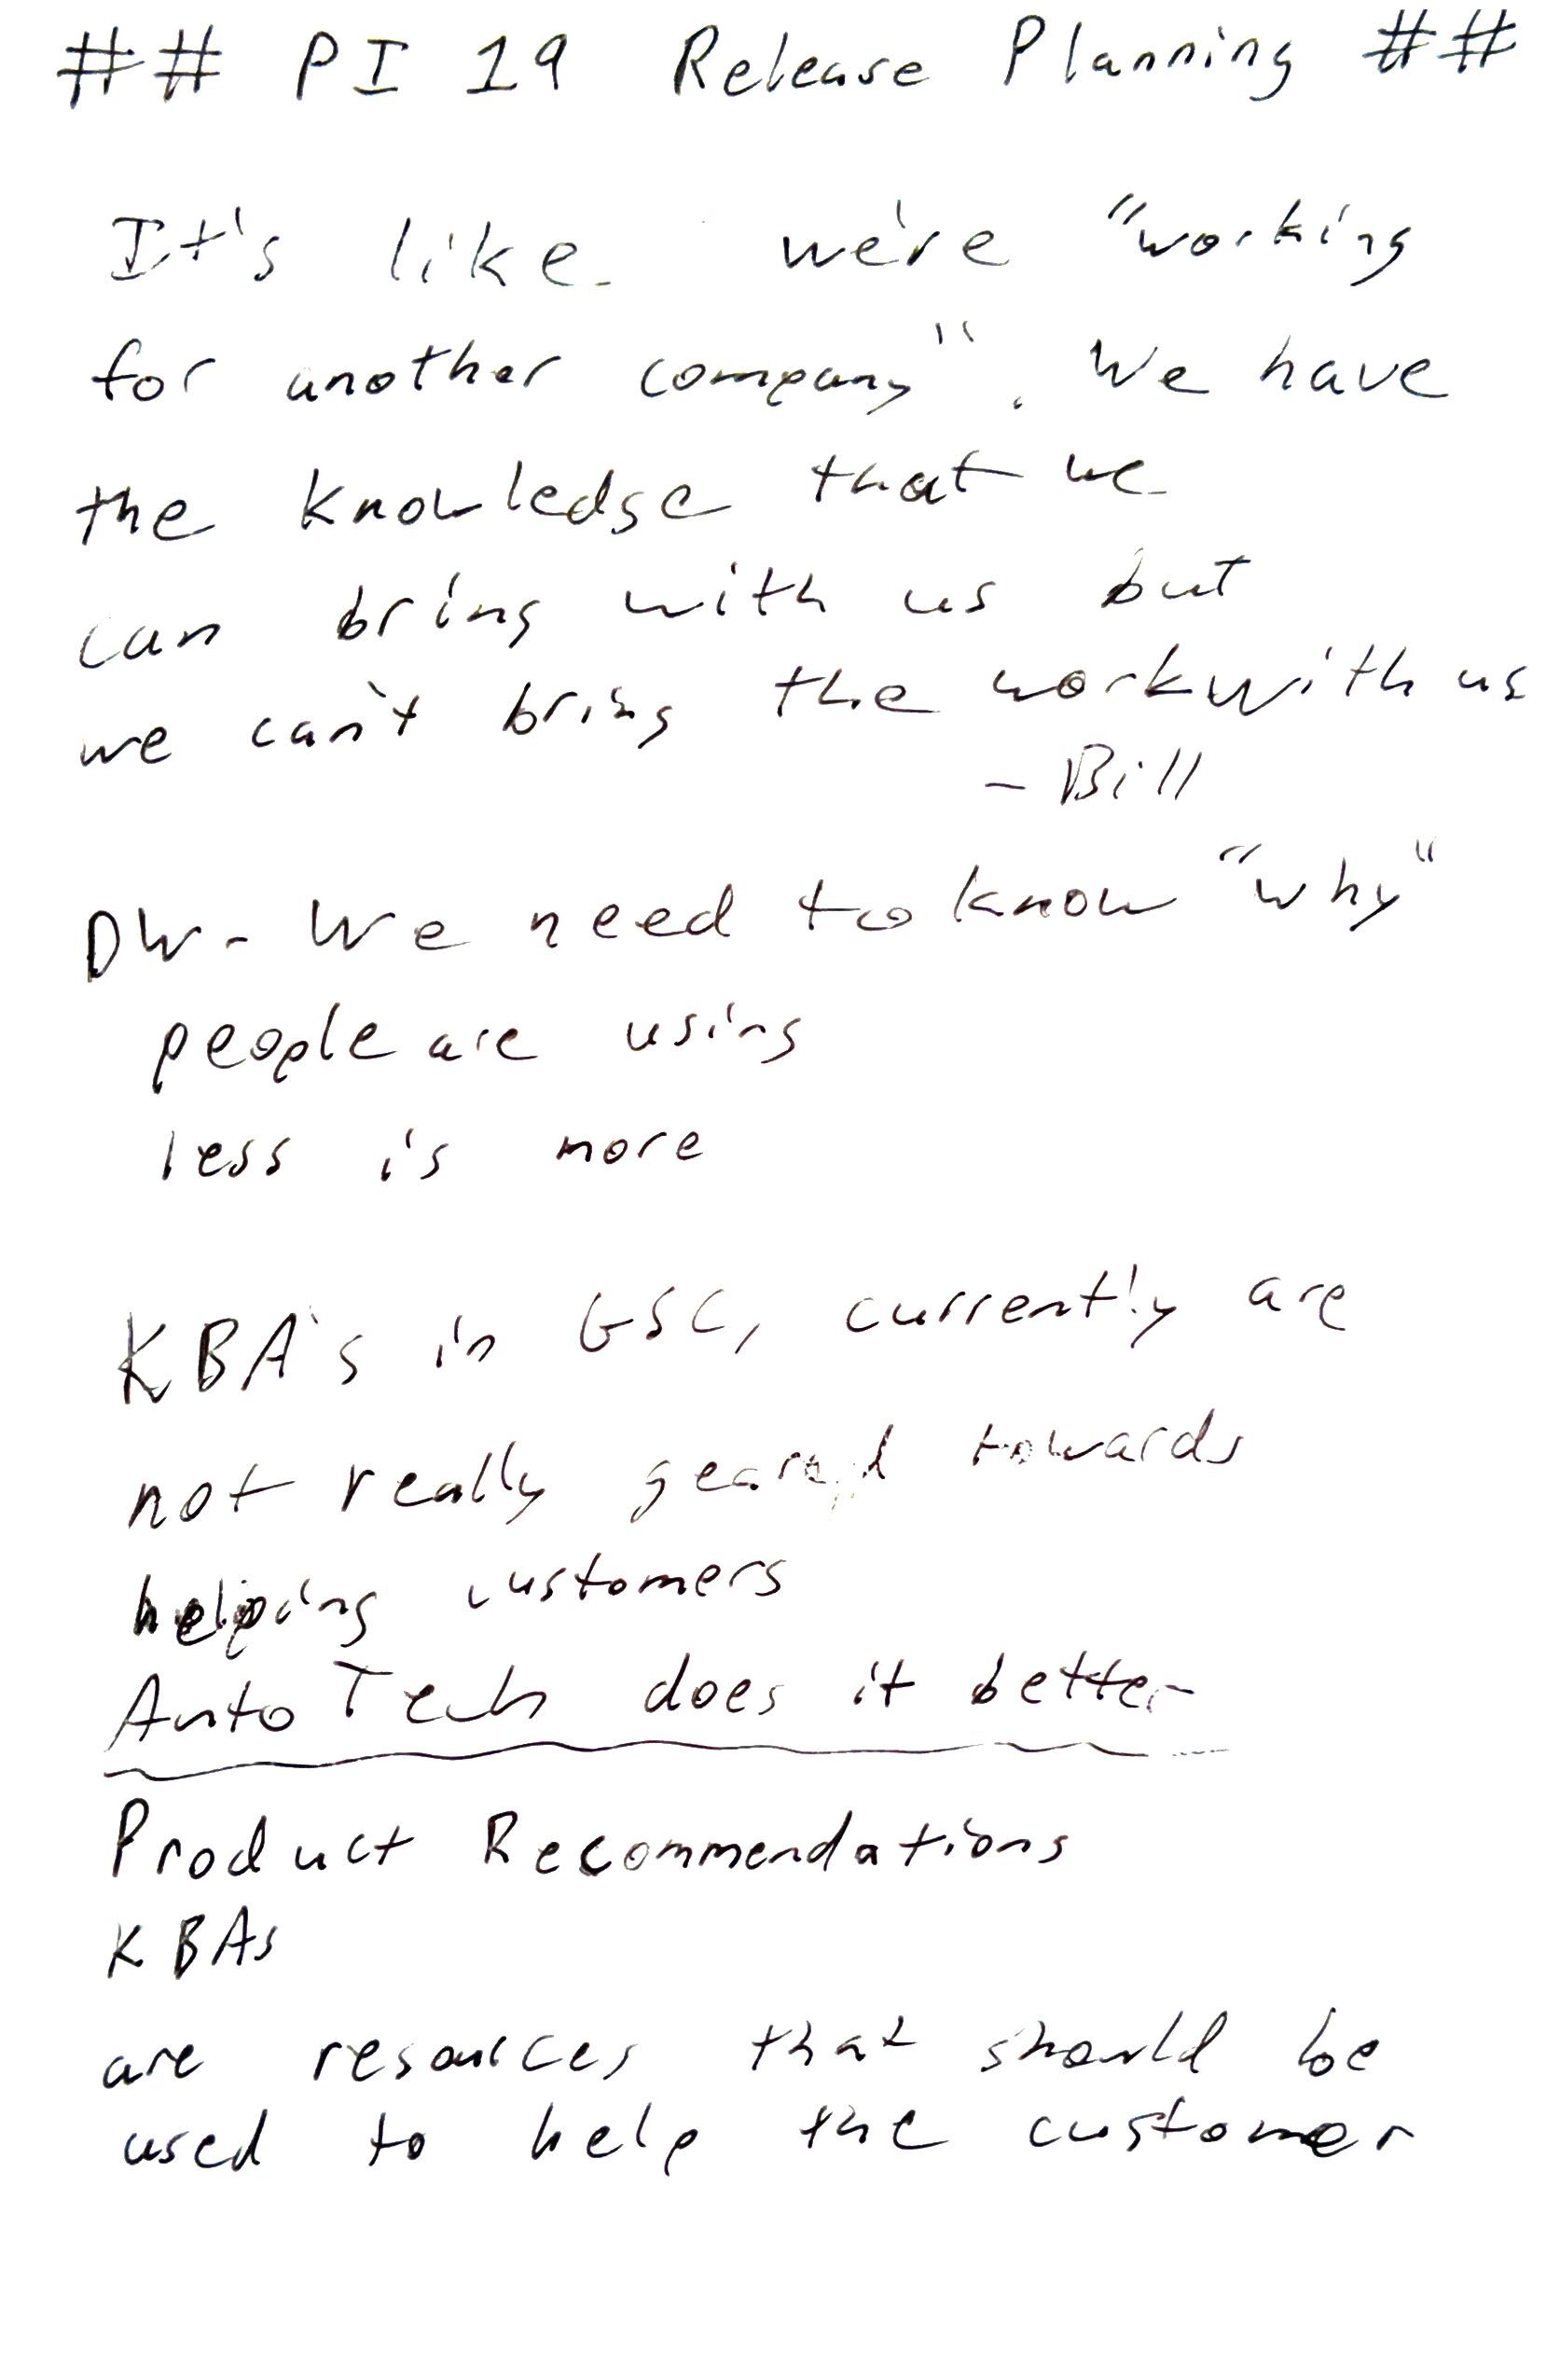 ## PI 19 Release Planning ##
It's like we're "working
for another company". We have
the knowledge that we
can bring with us but
we can't bring the work with us
- Bill
DW - We need to know "why"
people are using
less is more
KBA's in GSC, currently are
not really geared towards
helping customers
AutoTech does it better
Product Recommendations
KBAs
are resources that should be
used to help the customer